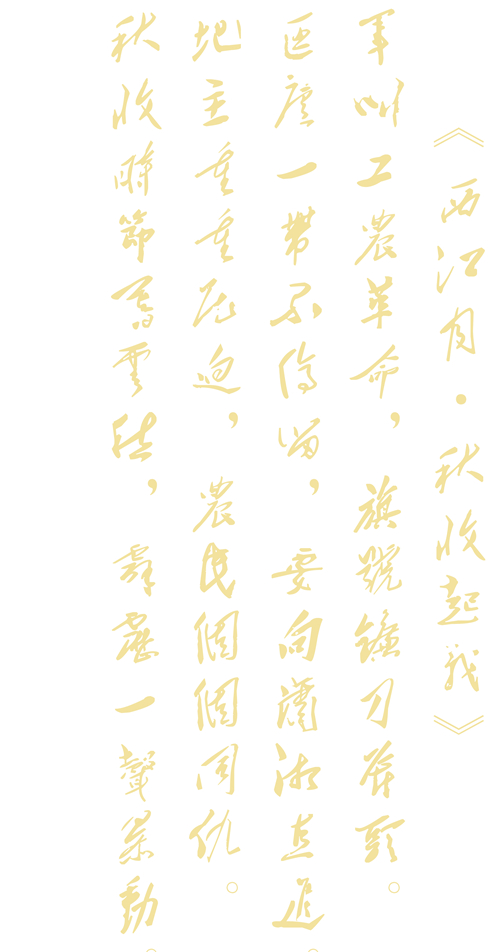 《西江月·秋收起義》
軍叫工農革命，旗號鐮刀斧頭。
匡廬一帶不停留，要向瀟湘直進。
地主重重压迫，農民個個同仇。
秋收時節暮雲愁，霹靂一聲暴動。